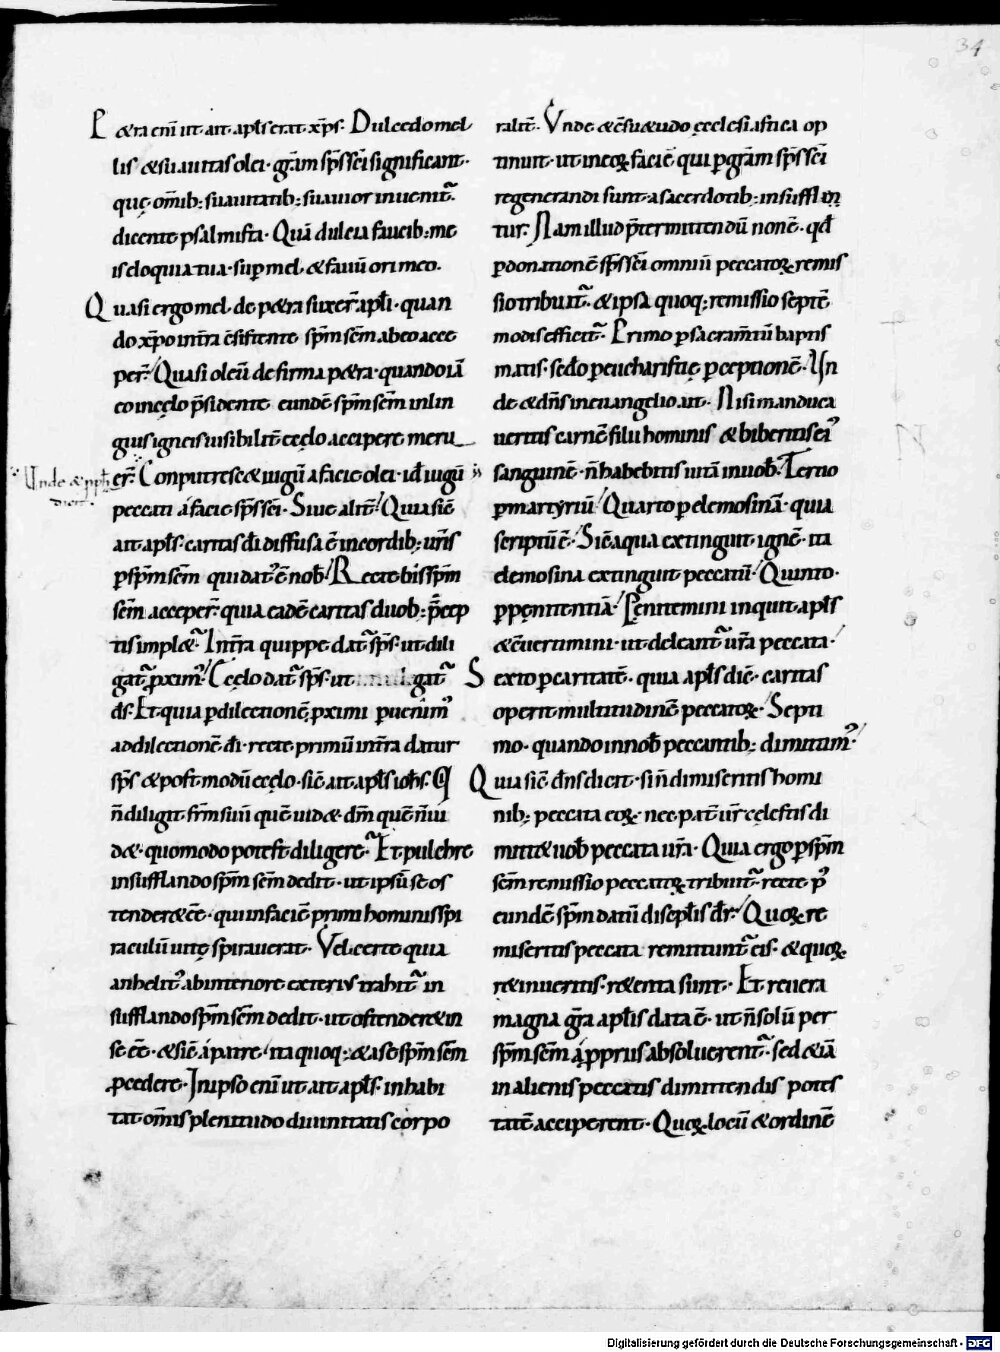 34
P&ra eni ut ait apl's erat xp̄s. Dulcedo mel
lis & suauitas olei. gr̄am sp̄s sc̄i significant.
quę om̄ib; suauitatib; suauior inuenit᷑.
dicente psalmista. Quā dulcia faucib; me
is eloquia tua. sup̄ mel & fauū ori meo.
Quasi ergo mel de p&ra suxer̄ apl'i. quan
do xp̄o int̄ra c̄sistente sp̄m sc̄m ab eo acce
per̄. Quasi oleū de firma p&ra. quando iā
eo in cęlo p̄sidente eundē sp̄m sc̄m in lin
guis igneis uisibilit̄ cęlo accipere meru
er̄. Conputresc& iugū a facie olei. id ÷ iugū
Unde & pph̄a
dicit.
peccati a facie sp̄s sc̄i. Siue alit̄. Quia sic̄
ait apl's. caritas dī diffusa ē in cordib; ur̄is
p̄ sp̄m sc̄m qui dat' ē nob̄. Recte bis sp̄m
sc̄m acceper̄. quia eadē caritas duob; p̄cep
tis impl&᷑. Int̄ra quippe dat᷑ sp̄s. ut dili
gat᷑ p̄xim'. Cęlo dat᷑ sp̄s. ut gat᷑
ds̄. Et quia p̄ dilectionē p̄ximi puenim'
ad dilectionē dī. recte primū int̄ra datur
sp̄s & post modū cęlo. sic̄ ait apl's ioh̄s. Q̄
n̄ diligit fr̄m suū quē uid&. dm̄ quē n̄ ui
d&. quomodo potest diligere᷑. Et pulchre
insufflando sp̄m sc̄m dedit. ut ipsū se os
tender& ēē. qui in faciē primi hominis spi
raculū uitę spirauerat. Vel certe quia
anhelit' ab interiore exterius trahit᷑ in
sufflando sp̄m sc̄m dedit. ut ostender& in
se ēē. & sic̄ a patre ita quoq; & a se sp̄m sc̄m
p̄cedere. In ipso eni ut ait apl's. inhabi
tat om̄is plenitudo diuinitatis corpo
ralit̄. Vnde & c̄su&udo ęcclesiastica op
tinuit. ut in eoꝝ faciē qui p̄ gr̄am sp̄s sc̄i
regenerandi sunt a sacerdotib; insufflan
tur. Nam illud p̄termittendū non ē. qd̄
p̄ donationē sp̄s sc̄i omniū peccatoꝝ remis
sio tribuit᷑. & ipsa quoq; remissio septē
modis efficit᷑. Primo p̄ sacram̄tū baptis
matis. sed̄o p̄ eucharistię p̄ceptionē. Vn
de & dn̄s in euangelio. ait. Nisi manduca
ueritis carnē filii hominis & biberitis ei'
sanguinē. n̄ habebitis uitā in uob̄. Tertio
p̄ martyriū. Quarto p̄ elemosinā. quia
scriptū ē. Sic̄ aqua extinguit ignē. ita
elemosina extinguit peccatū. Quinto.
p̄ pęnitentiā. Pęnitemini inquit apl's
& c̄uertimini. ut deleant᷑ ur̄a peccata.
Sexto p̄ caritatē. quia apl's dic̄. caritas
operit multitudinē peccatoꝝ. Septi
mo. quando in nob̄ peccantib; dimittim'.
Quia sic̄ dn̄s dicit. si n̄ dimiseritis homi
nib; peccata eoꝝ. nec pat̄ ur̄ cęlestis di
mitt& uob̄ peccata ur̄a. Quia ergo p̄ sp̄m
sc̄m remissio peccatoꝝ tribuit᷑. recte p'
eundē sp̄m datū discipl̄is dr̄. Quoꝝ re
miseritis peccata remittunt᷑ eis. & quoꝝ
r&inueritis. r&enta sunt. Et reuera
magna gr̄a apl'is data ē. ut n̄ solū per
sp̄m sc̄m a p̄priis absoluerent᷑. sed & iā
in alienis peccatis dimittendis potes
tatē acciperent. Quoꝝ locū & ordinē
Digitalisierung gefördert durch die Deutsche Forschungsgemeinschaft - DFG